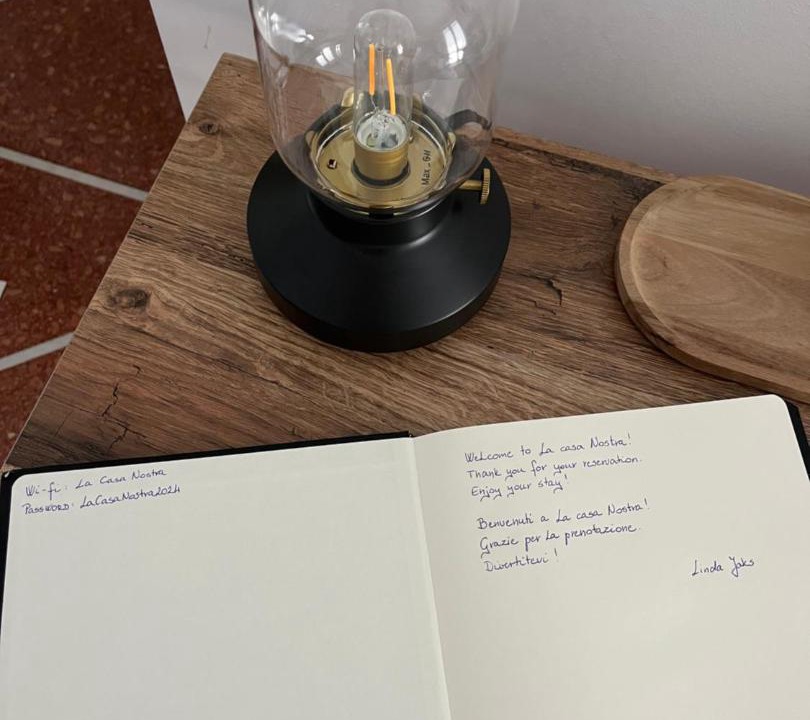 Max_6W
Wi-fi: La Casa Nostra
PassWORD: LaCasaNostra2024
WeLcome to La casa Nostra!
Thank you for your reservation.
Enjoy your stay!
Benvenuti a La casa Nostra!
Grazie per La prenotazione.
Divertitevi!
Linda Jaks